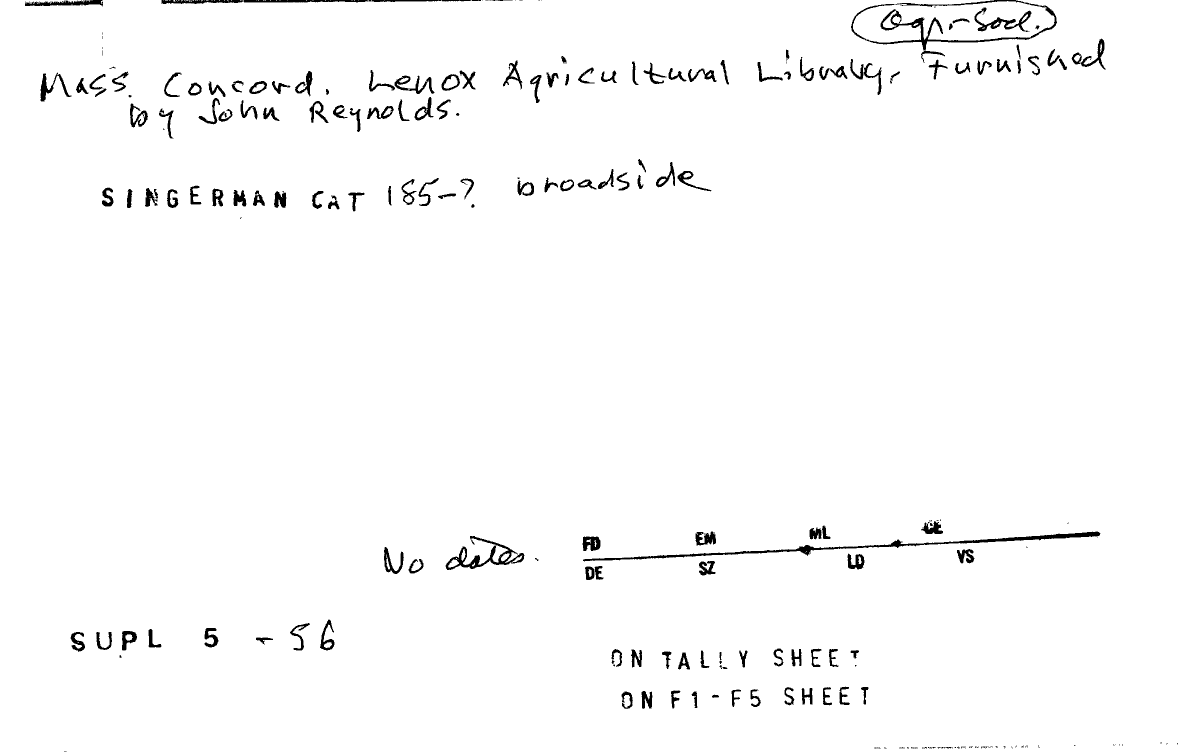 Agr-Socl.
Mass. Concord. Lenox Agricultural Library, Furnished
by John Reynolds.
SINGERMAN CAT 185-? broadside
No dates.
FD EM ML CE
DE SZ LD VS
SUPL 5 - 56
ON TALLY SHEET
ON F1-F5 SHEET